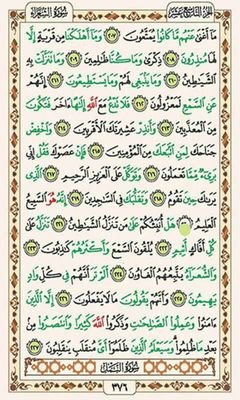 الجزء التاسع عشر سورة الشعراء
مَا أَغْنَىٰ عَنْهُم مَّا كَانُوا يُمَتَّعُونَ ٢٠٧ وَمَا أَهْلَكْنَا مِن قَرْيَةٍ إِلَّا
لَهَا مُنذِرُونَ ٢٠٨ ذِكْرَىٰ وَمَا كُنَّا ظَٰلِمِينَ ٢٠٩ وَمَا تَنَزَّلَتْ بِهِ
ٱلشَّيَٰطِينُ ٢١٠ وَمَا يَنۢبَغِي لَهُمْ وَمَا يَسْتَطِيعُونَ ٢١١ إِنَّهُمْ
عَنِ ٱلسَّمْعِ لَمَعْزُولُونَ ٢١٢ فَلَا تَدْعُ مَعَ ٱللَّهِ إِلَٰهًا ءَاخَرَ فَتَكُونَ
مِنَ ٱلْمُعَذَّبِينَ ٢١٣ وَأَنذِرْ عَشِيرَتَكَ ٱلْأَقْرَبِينَ ٢١٤ وَٱخْفِضْ
جَنَاحَكَ لِمَنِ ٱتَّبَعَكَ مِنَ ٱلْمُؤْمِنِينَ ٢١٥ فَإِنْ عَصَوْكَ فَقُلْ إِنِّي
بَرِيٓءٌ مِّمَّا تَعْمَلُونَ ٢١٦ وَتَوَكَّلْ عَلَى ٱلْعَزِيزِ ٱلرَّحِيمِ ٢١٧ ٱلَّذِي
يَرَىٰكَ حِينَ تَقُومُ ٢١٨ وَتَقَلُّبَكَ فِي ٱلسَّٰجِدِينَ ٢١٩ إِنَّهُ هُوَ ٱلسَّمِيعُ
ٱلْعَلِيمُ ٢٢٠ هَلْ أُنَبِّئُكُمْ عَلَىٰ مَن تَنَزَّلُ ٱلشَّيَٰطِينُ ٢٢١ تَنَزَّلُ عَلَىٰ
كُلِّ أَفَّاكٍ أَثِيمٍ ٢٢٢ يُلْقُونَ ٱلسَّمْعَ وَأَكْثَرُهُمْ كَٰذِبُونَ ٢٢٣
وَٱلشُّعَرَآءُ يَتَّبِعُهُمُ ٱلْغَاوُونَ ٢٢٤ أَلَمْ تَرَ أَنَّهُمْ فِي كُلِّ وَادٍ
يَهِيمُونَ ٢٢٥ وَأَنَّهُمْ يَقُولُونَ مَا لَا يَفْعَلُونَ ٢٢٦ إِلَّا ٱلَّذِينَ
ءَامَنُوا وَعَمِلُوا ٱلصَّٰلِحَٰتِ وَذَكَرُوا ٱللَّهَ كَثِيرًا وَٱنتَصَرُوا مِنۢ
بَعْدِ مَا ظُلِمُوا وَسَيَعْلَمُ ٱلَّذِينَ ظَلَمُوٓا أَيَّ مُنقَلَبٍ يَنقَلِبُونَ ٢٢٧
سورة النمل
٣٧٦